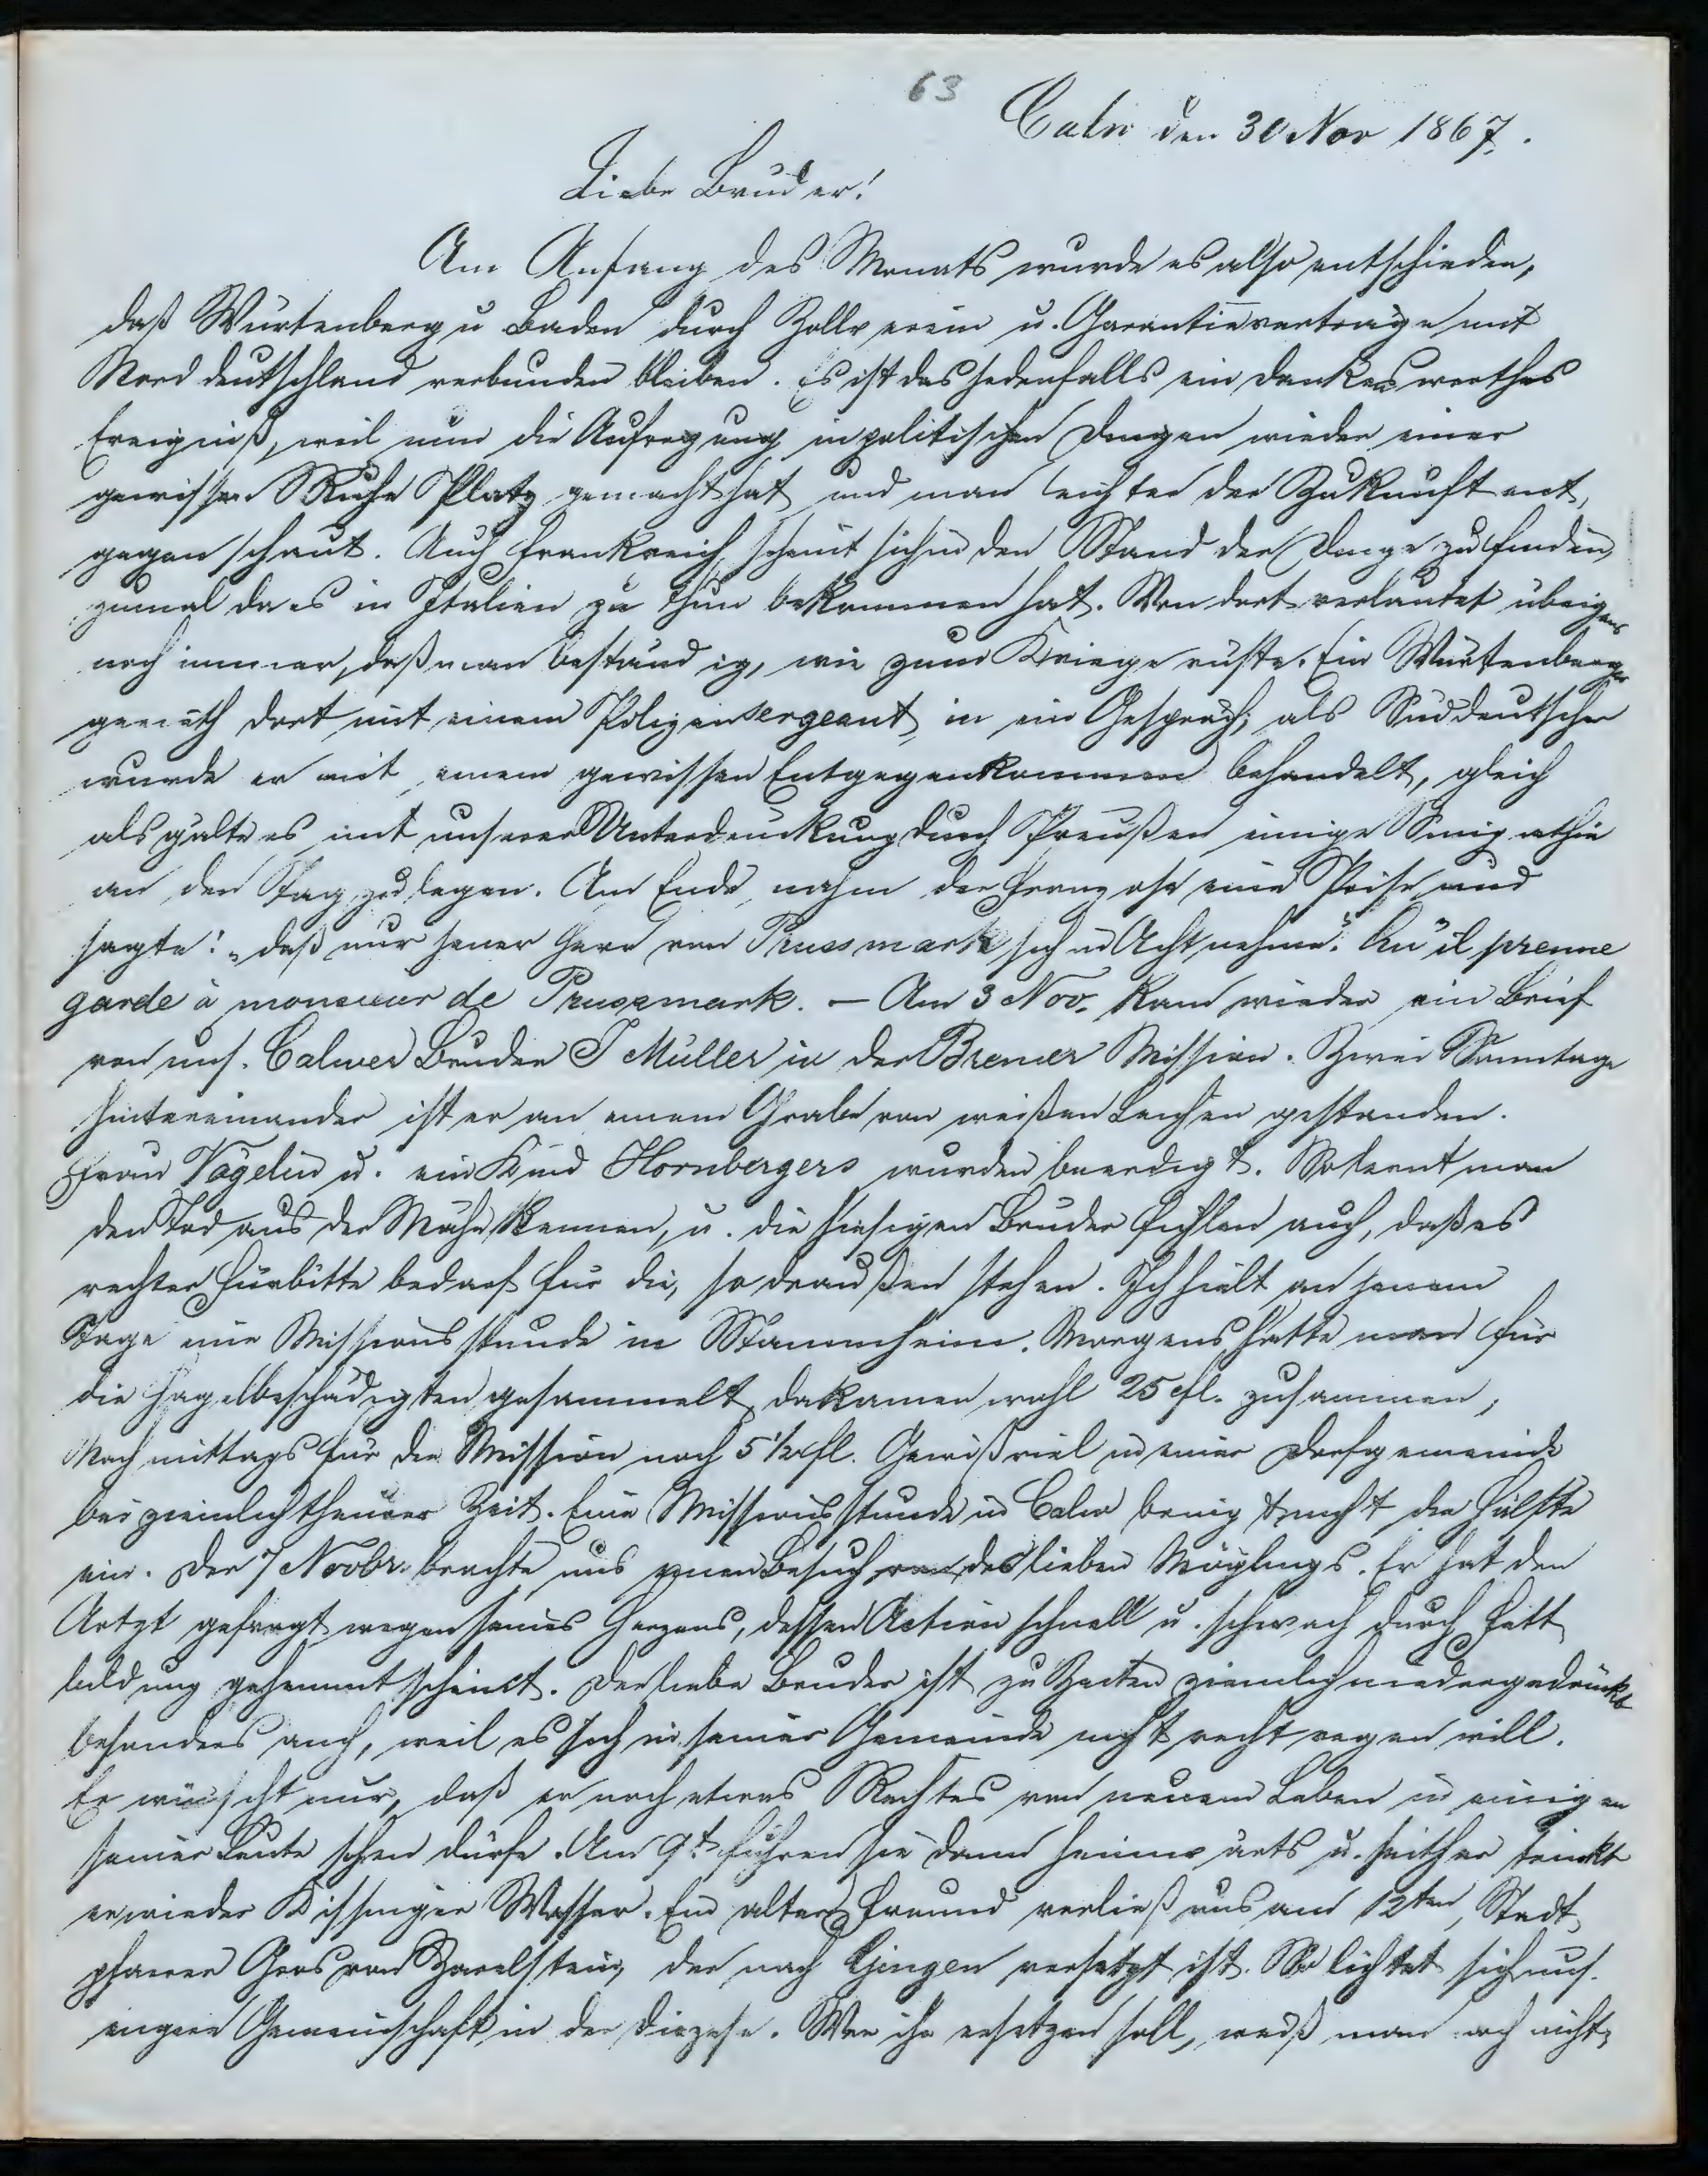 63
Calw den 30 Nov 1867.
Liebe Brüder!
Am Anfang des Monats wurde es also entschieden,
daß Würtenberg u Baden durch Zollverein u. Garantieverträge mit
Norddeutschland verbunden bleiben. Es ist das jedenfalls ein dankenswerthes
Ereigniß, weil nun die Aufregung in politischen Dingen wieder einer
gewissen Ruhe Platz gemacht hat und man leichter der Zukunft ent
gegen schaut. Auch Frankreich scheint sich in den Stand der Dinge zu finden,
zumal da es in Italien zu thun bekommen hat. Von dort verlautet übrigens
noch immer, daß man beständig, wie zum Kriege rüste. Ein Würtenberger
gerieth dort mit einem Polizeisergeant in ein Gespräch; als Süddeutscher
wurde er mit einem gewissen Entgegenkommen behandelt, gleich
als gälte es mit unserer Unterdrückung durch Preußen einige Simpathie
an den Tag zu legen. Am Ende nahm der Franzose eine Prise und
sagte: „daß nur jener Herr von Prussmark sich in Acht nehme." Qu'il prenne
garde à monsieur de Prussmark. – Am 3 Nov. kam wieder ein Brief
von uns. Calwer Bruder J Müller in der Bremer Mission. Zwei Sonntage
hintereinander ist er an einem Grabe von weißen Leichen gestanden.
Frau Vögelin u. ein Kind Hornbergers wurden beerdigt. So lernt man
den Tod aus der Nähe kennen, u. die hiesigen Brüder fühlen auch, daß es
rechter Fürbitte bedarf für die, so draußen stehen. Ich hielt an jenem
Tage eine Missionsstunde in Stammheim. Morgens hatte man für
die Hagelbeschädigten gesammelt, da kamen wohl 25 fl. zusammen,
Nachmittags für die Mission noch 5 1/2 fl. Gewiß viel in einer Dorfgemeinde
bei ziemlich theurer Zeit. Eine Missionsstunde in Calw bringt nicht die Hälfte
ein. Der 7 Novbr. brachte uns einen Besuch des lieben Möglings. Er hat den
Artzt gefragt wegen seines Herzens, dessen Action schnell u. schwach durch Fett
bildung gehemmt scheint. Der liebe Bruder ist zu Zeiten ziemlich niedergedrückt
besonders auch, weil es sich in seiner Gemeinde nicht recht regen will.
Er wünscht nur, daß er noch etwas Rechtes von neuem Leben in einigen
seiner Leute sehen dürfe. Am 9t. fuhren sie dann heimwärts u. seither trinkt
er wieder Kissinger Wasser. Ein alter Freund verließ uns am 12ten, Stadt
pfarrer Gros von Zavelstein, der nach Gingen versetzt ist. So lichtet sich uns.
engere Gemeinschaft in der Diözese. Wer ihn ersetzen soll, weiß man noch nicht,